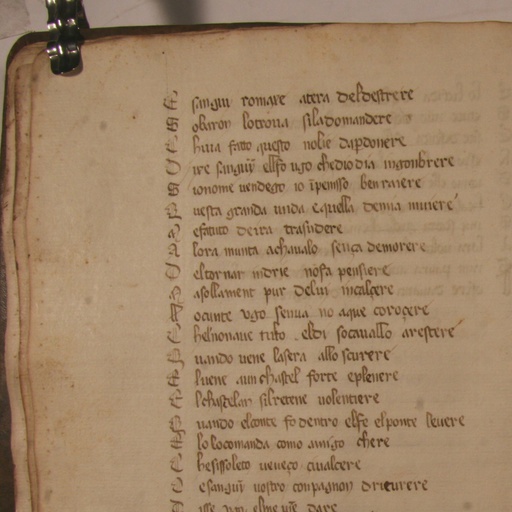 E sangui romare atera deldestrere
S obaron lotrova siladomandere
C huia fatto questo nolie dapdonere
D ire sangui ello ugo chedio dia ingonbrere
S ionome vendego io ipenisso ben raiere
Q uesta granda unda equella demia muiere
A efatuto deira trasudere
A lora munta achavalo sença demorere
D eltornar indrie nosa pensiere
S asollament pur delui incalçere
N ocunte ugo senua no aque coroçere
C helnonave tuto eldi socavallo arestere
Q uando vene lasera allo scurere
E luene aun chastel forte eplenere
E lchastelan silretene volentiere
Q uando elconte fo dentro elfe elponte levere
E lo locomanda como amigo chere
C hesissoleto veveço civalcere
D esangui vostro conpagnon driturere